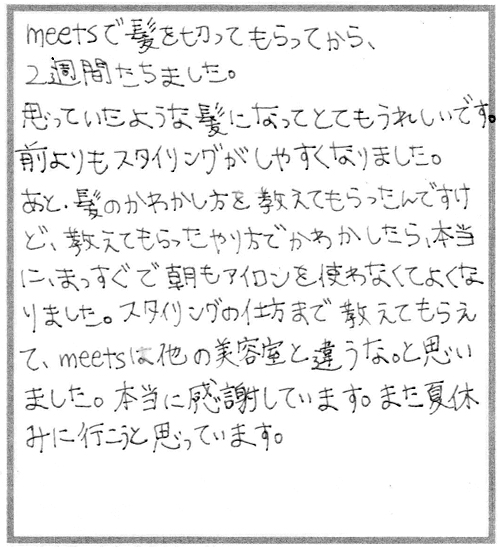 meetsで髪を切ってもらってから、
2週間たちました。
思っていたような髪になってとてもうれしいです。
前よりもスタイリングがしやすくなりました。
あと、髪のかわかし方を教えてもらったんですけ
ど、教えてもらったやり方でかわかしたら、本当
に、まっすぐで朝もアイロンを使わなくてよくな
りました。スタイリングの仕方まで教えてもらえ
て、meetsは他の美容室と違うな。と思い
ました。本当に感謝しています。また夏休
みに行こうと思っています。